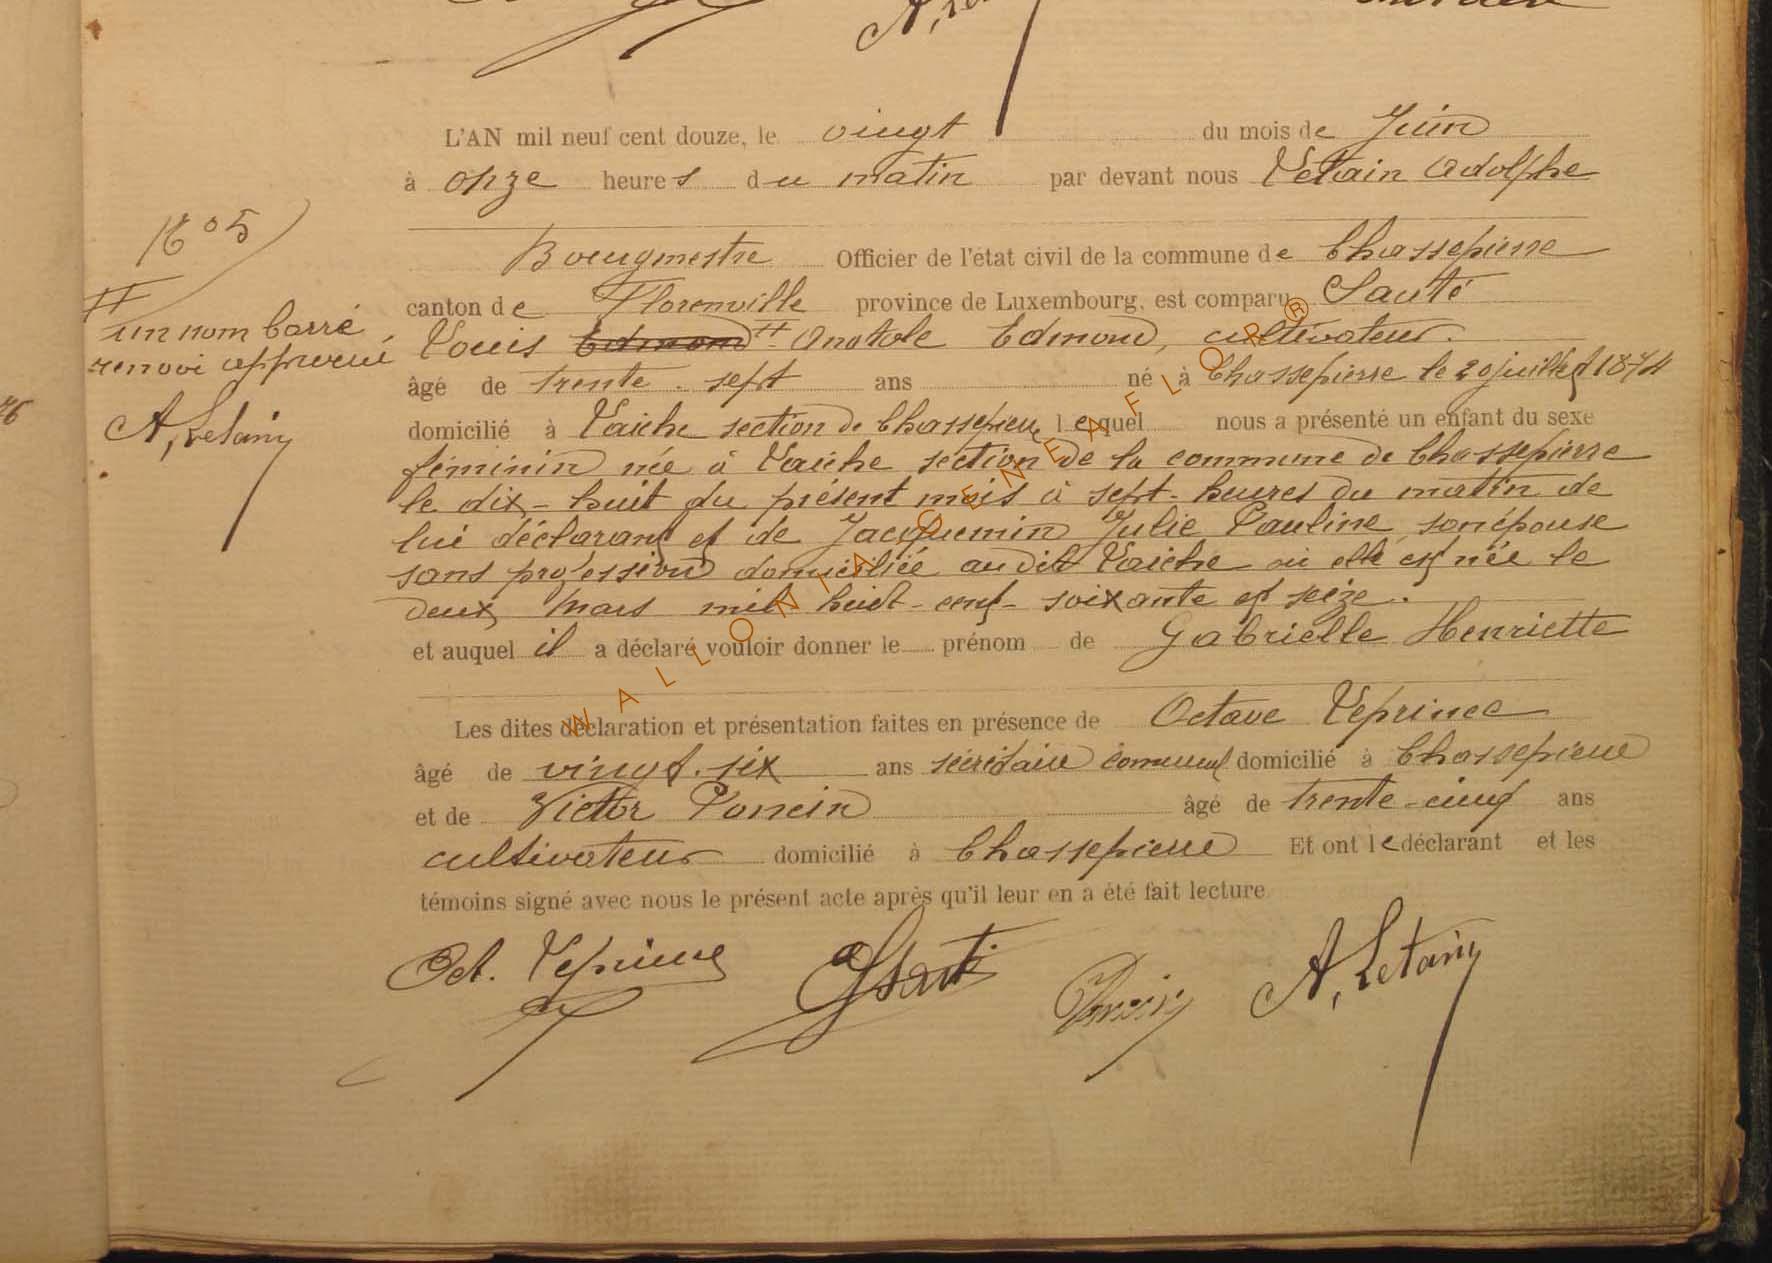 L'AN mil neuf cent douze, le vingt du mois de Juin
à onze heures du matin par devant nous Letain Adolphe
N° 5
Bourgmestre Officier de l'état civil de la commune de Chassepierre
canton de Florenville province de Luxembourg, est comparu Santé
un nom barré
renvoi approuvé
A. Letain
Louis Edmond # Anatole Edmond, cultivateur.
âgé de trente-sept ans né à Chassepierre le 20 juillet 1874
domicilié à Laiche section de Chassepierre lequel nous a présenté un enfant du sexe
féminin née à Laiche section de la commune de Chassepierre
le dix-huit du présent mois à sept heures du matin de
lui déclarant et de Jacquemin Julie Pauline, son épouse
sans profession domiciliée au dit Laiche où elle est née le
deux Mars mil huit-cent-soixante et seize.
et auquel il a déclaré vouloir donner le prénom de Gabrielle Henriette
Les dites déclaration et présentation faites en présence de Octave Leprince
âgé de vingt-six ans secrétaire communal domicilié à Chassepierre
et de Victor Poncin âgé de trente-cinq ans
cultivateur domicilié à Chassepierre Et ont le déclarant et les
témoins signé avec nous le présent acte après qu'il leur en a été fait lecture
Oct. Leprince
Poncin
A. Letain
WALLONIA GENEAFLOR ®